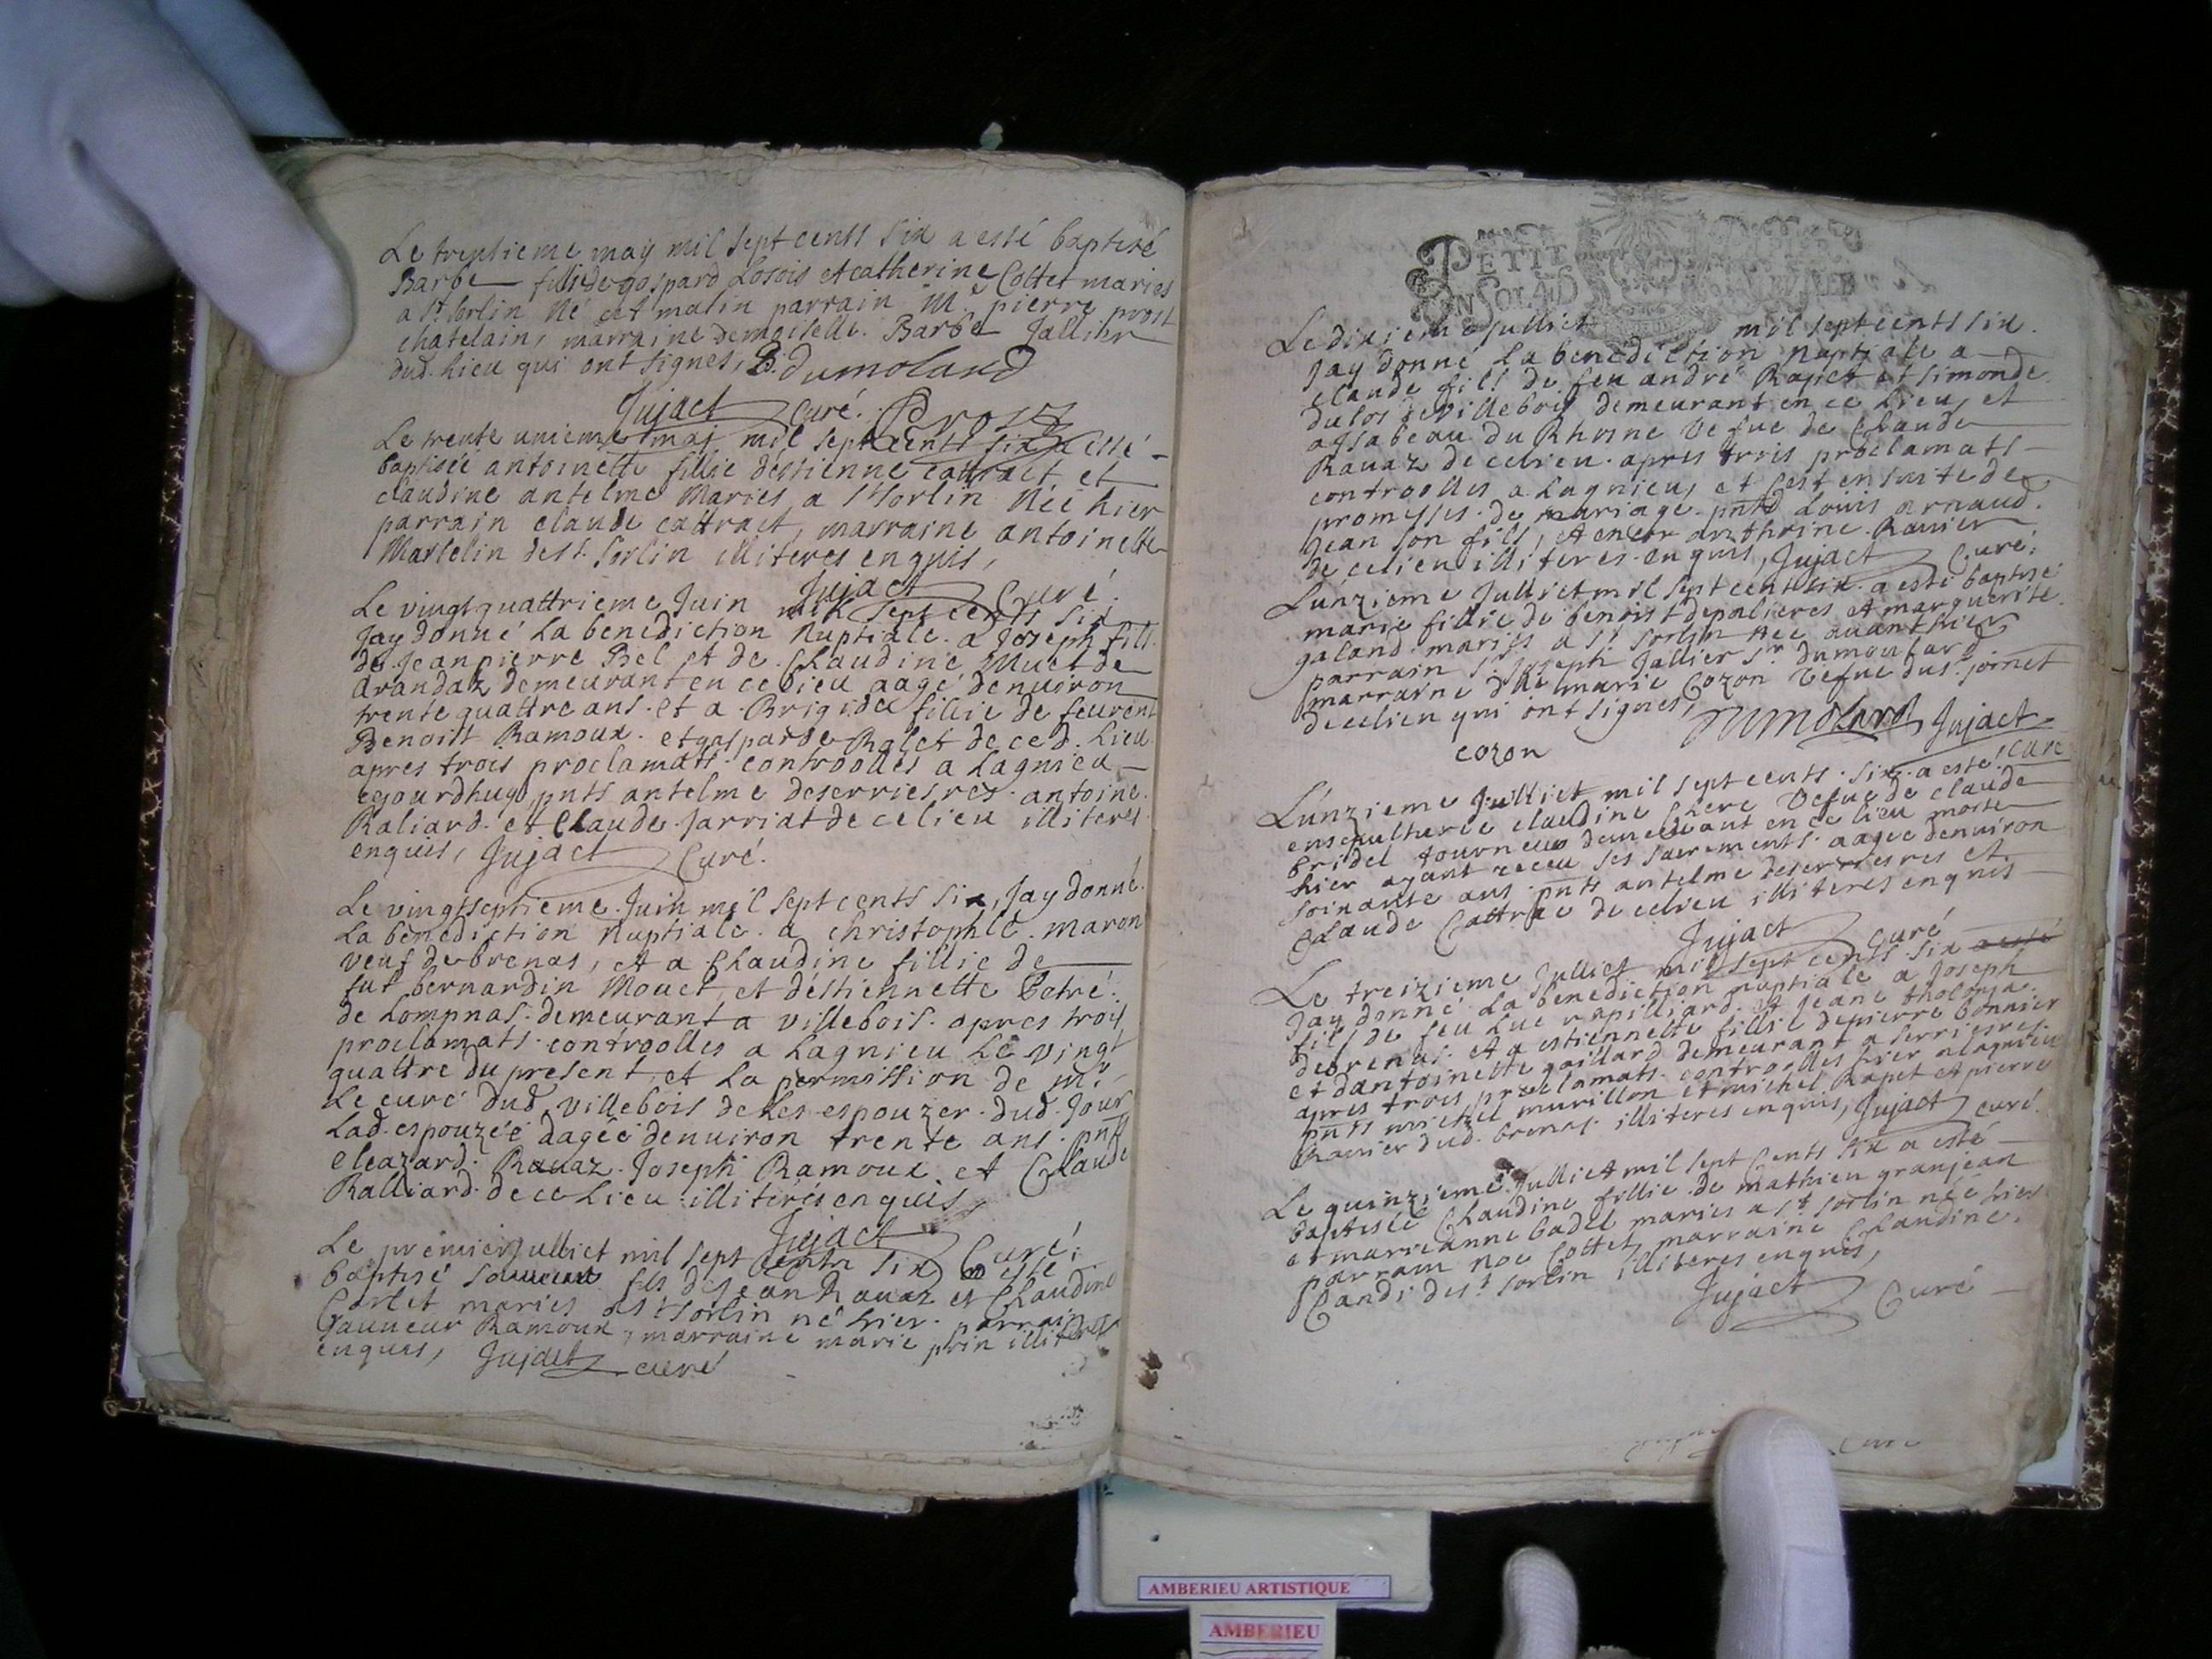 Le trentieme may mil sept cents six a esté baptisé
Barbe fillie de gaspard Losois et catherine Cottet maries
a St. sorlin Né cet matin parrain Mr pierre prost
chatelain, marraine demoiselle Barbe Jallier
dud. lieu qui ont signes, B. dumoland
Jujact Curé. Prost
Le trente unieme maj mil sept cents six a esté
baptisée antoinette fillie destienne cattract et
claudine antelme Maries a St sorlin Née hier
parrain claude cattract, marraine antoinette
Martelin de st. sorlin illiteres enquis,
Jujact Curé.
Le vingt quattrieme Juin mil sept cents six
Jay donné La benediction Nuptiale a Joseph fils
de Jean pierre Bel et de Claudine Muet de
Arandaz demeurant en ce lieu aagé denuiron
trente quattre ans et a Brigide fillie de feurent
Benoist Ramoux et gasparde Ralet de ced. Lieu
apres trois proclamats controolles a Lagnieu
ejourdhuy pnts antelme deserriesres antoine
Raliard et Claude Jarriat de ce lieu illiteres
enquis, Jujact Curé.
Le vingtseptieme Juin mil sept cents six, Jay donné
La benediction Nuptiale a christophle maron
veuf de brenas, et a Claudine fillie de
fut bernardin Mouet et déstiennette Betré
de Lompnas demeurant a villebois apres trois
proclamats controolles a Lagnieu Le vingt
quattre du present et La permission de Mr
Le curé dud villebois de Les espouzer dud. Jour
Lad. espouzée dagée denuiron trente ans pnts
eleazard Rauaz Joseph Ramoux et Claude
Ralliard de ce Lieu illiterés enquis,
Jujact Curé.
Le premier Julliet mil sept cents six a esté
baptisé fils de Jean Rauaz et Claudine
Cottet maries a St sorlin né hier parrain
Ramoux, marraine marie prin illiteres
enquis, Jujact curé
PETIT PAPIER
EN SOLAID
Le dixieme Julliet mil sept cents six
Jay donné La benediction nuptiale a
claude fils de feu andré Rapet et simonde
dulos de villebois demeurant en ce Lieu, et
a ysabeau du Rhosne Vefue de Claude
Rauaz de ce lieu apres trois proclamats
controolles a Lagnieu, et cest ensuite de
promesses de mariage pnts Louis arnaud
Jean son fils, et encor anthoine Rauier
de ce lieu illiteres enquis, Jujact Curé.
Lunzieme Julliet mil sept cents six a esté baptisé
marie fillie de benoist depolieres et marguerite
galand maries a St sorlin née auanthier
parrain Sr Joseph Jallier Sr dumoulard
marraine dlle marie Cozon Vefue du Sr joinet
de ce lieu qui ont signes,
Dumolard Jujact
cozon curé
Lunzieme Julliet mil sept cents six a esté
ensepulturée claudine Clere Vefue de claude
bridel tourneur demeurant en ce lieu morte
hier ayant receu ses sacrements aagée denuiron
soixante ans pnts antelme deserriesres et
Claude Cattrac de ce lieu illiteres enquis
Jujact curé
Le treizieme Julliet mil sept cents six a esté
Jay donné La benediction nuptiale a Joseph
fils de feu Luc rapilliard et Jeane tholonja
de brenas et a estiennette fillie de pierre bonnier
et dantoinette gaillard demeurant a serriesres
apres trois proclamats controolles hier a Lagnieu
pnts michel murillon et michel Rapet et pierre
Rauier dud. brenas illiteres enquis, Jujact curé.
Le quinzieme Julliet mil sept Cents six a esté
baptisée Claudine fillie de mathieu granjean
et marieanne badel maries a St sorlin née hier
parrain noe Cottet, marraine Claudine
Candi de st sorlin illiteres enquis,
Jujact Curé
Curé
AMBERIEU ARTISTIQUE
AMBERIEU